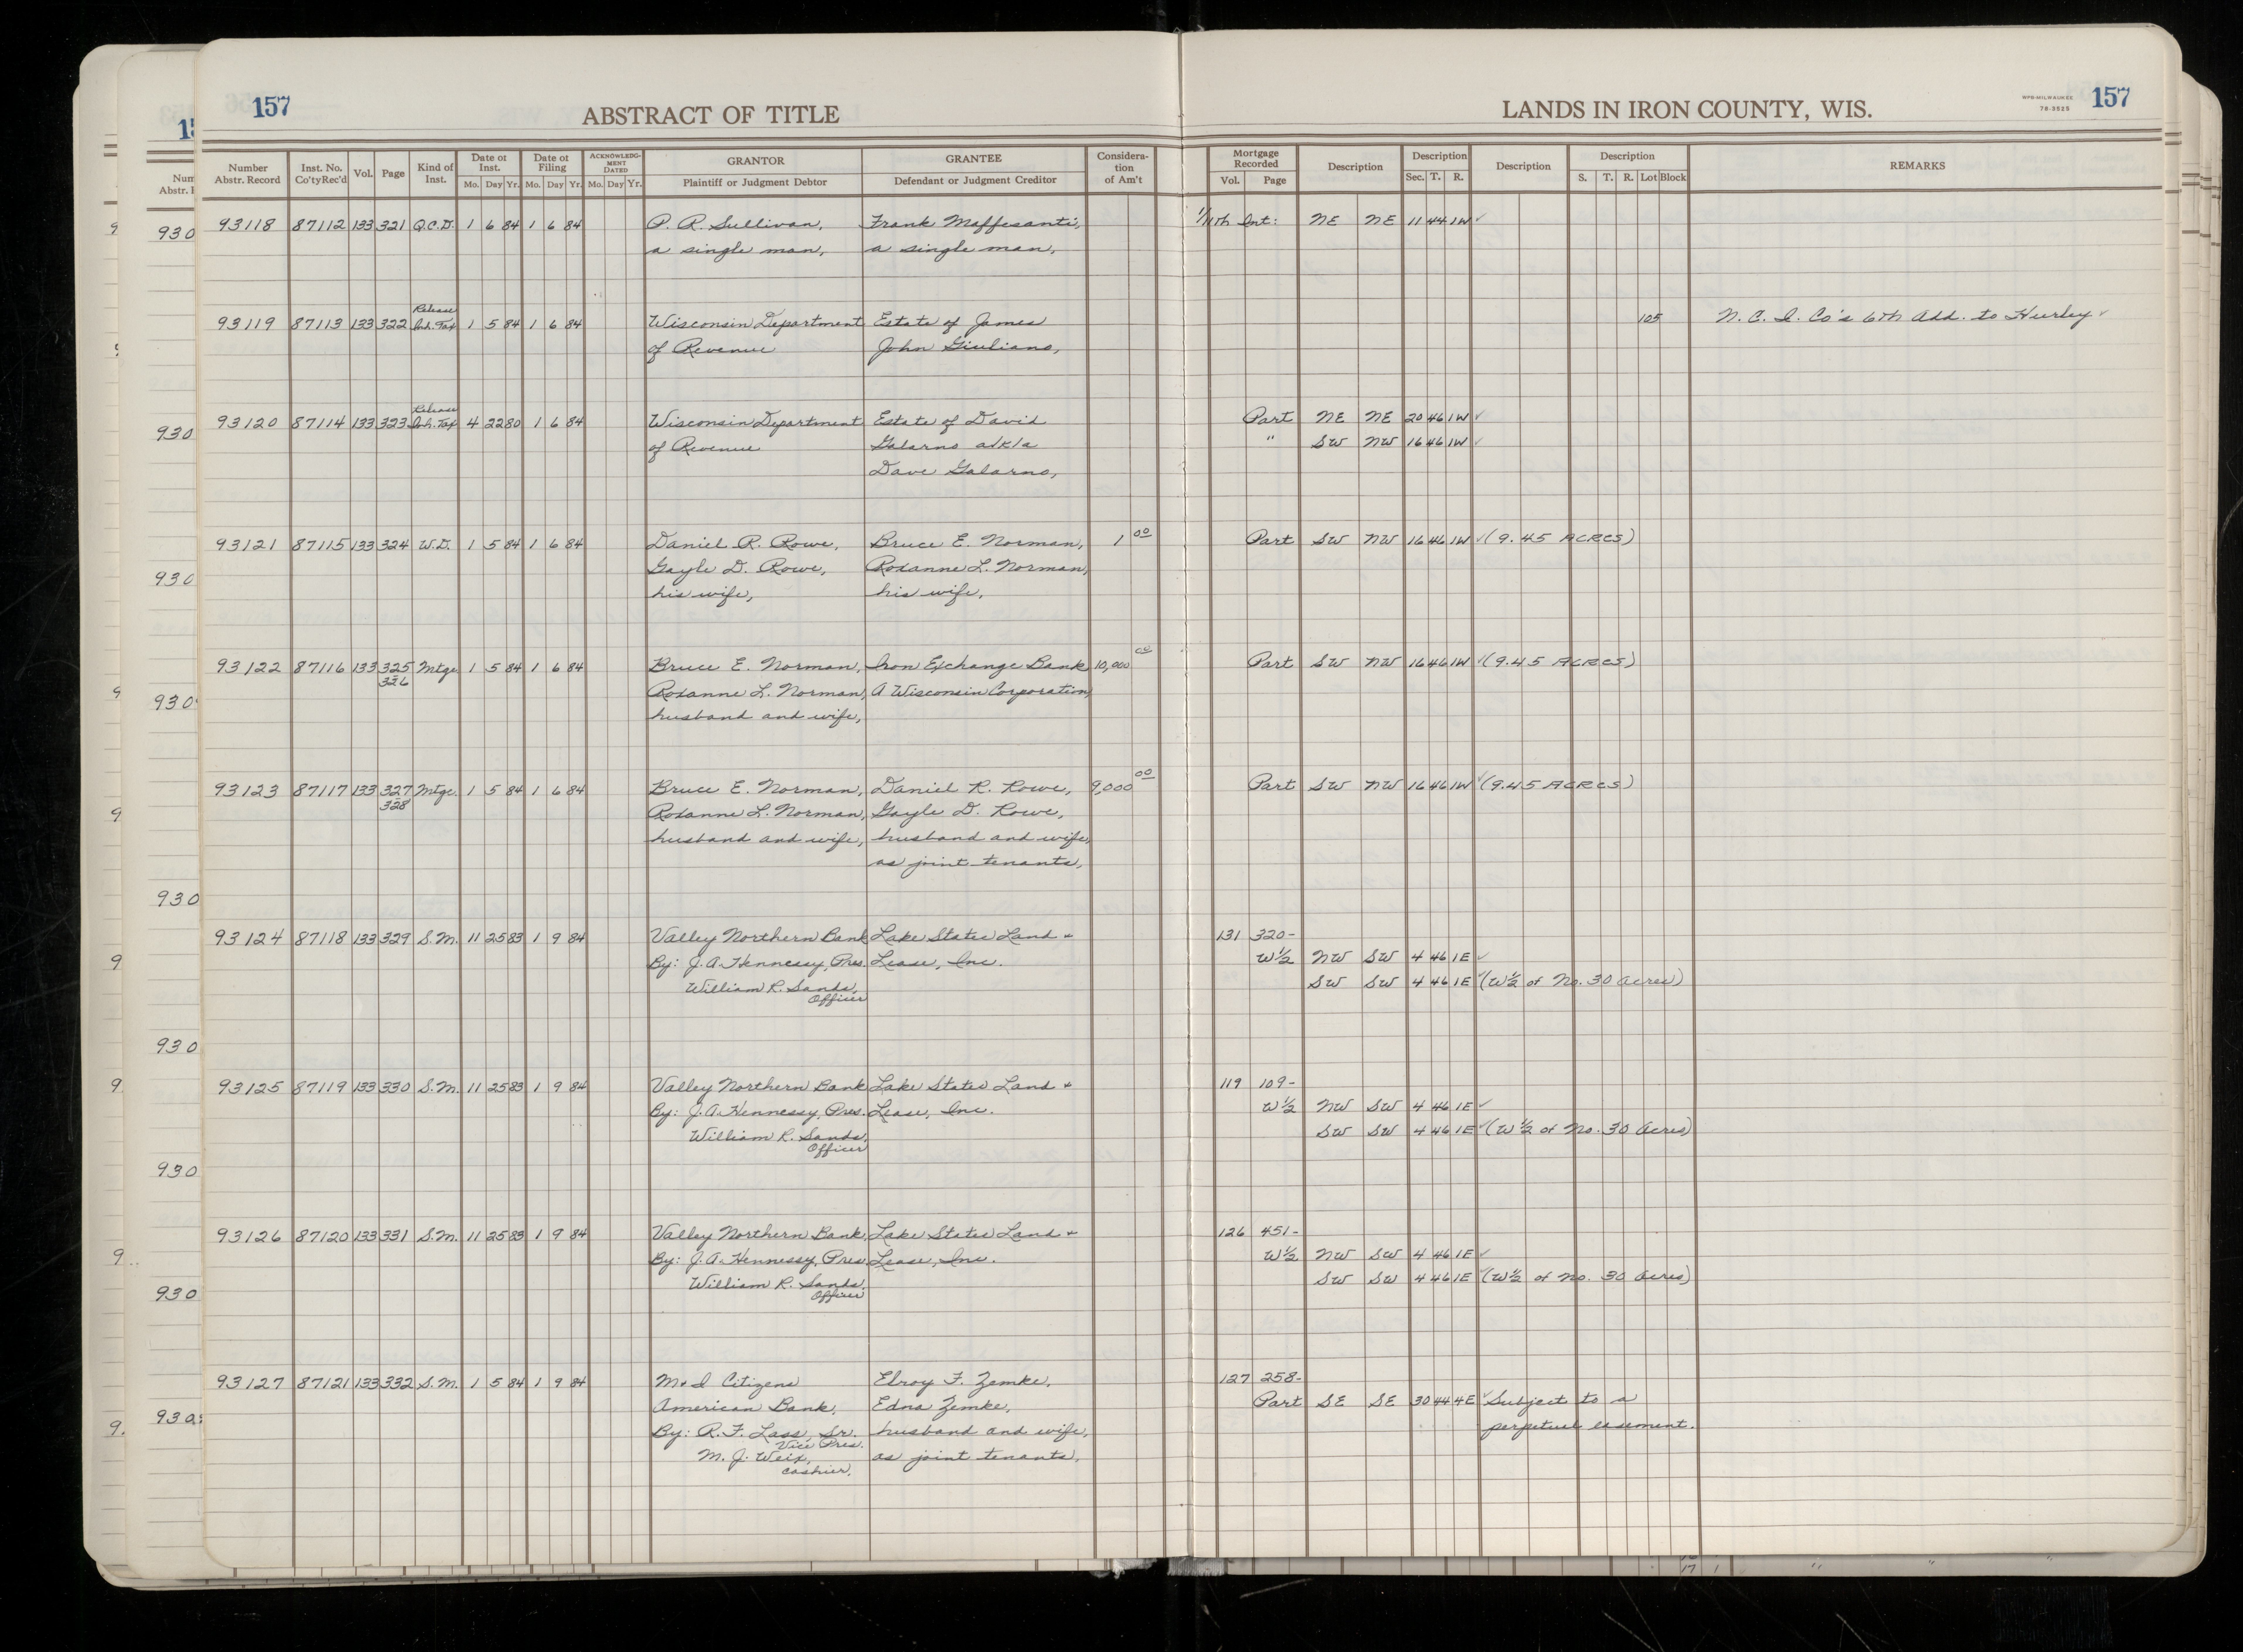 157
ABSTRACT OF TITLE
LANDS IN IRON COUNTY, WIS.
WPB-MILWAUKEE
78-3525
157
Number Abstr. Record
Inst. No. Co'ty Rec'd
Vol.
Page
Kind of Inst.
Date of Inst.
Mo. Day Yr.
Date of Filing
Mo. Day Yr.
ACKNOWLEDGMENT DATED
Mo. Day Yr.
GRANTOR
Plaintiff or Judgment Debtor
GRANTEE
Defendant or Judgment Creditor
Consideration of Am't
Mortgage Recorded
Vol. Page
Description
Description
Sec. T. R.
Description
Description
S. T. R. Lot Block
REMARKS
93118 87112 133 321 Q.C.D. 1 6 84 1 6 84 P. R. Sullivan, Frank Maffesanti, 1/11th Int: NE NE 11 44 1W ✓
a single man, a single man,
Release
93119 87113 133 322 Inh. Tax 1 5 84 1 6 84 Wisconsin Department Estate of James 105 N. C. I. Co's 6th Add. to Hurley ✓
of Revenue John Giuliano,
Release
93120 87114 133 323 Inh. Tax 4 22 80 1 6 84 Wisconsin Department Estate of David Part NE NE 20 46 1W ✓
of Revenue Galarno a/k/a " SW NW 16 46 1W ✓
Dave Galarno,
93121 87115 133 324 W.D. 1 5 84 1 6 84 Daniel R. Rowe, Bruce E. Norman, 1 00 Part SW NW 16 46 1W ✓ (9.45 ACRES)
Gayle D. Rowe, Roxanne L. Norman,
his wife, his wife,
93122 87116 133 325 Mtge. 1 5 84 1 6 84 Bruce E. Norman, Iron Exchange Bank 10,000 00 Part SW NW 16 46 1W ✓ (9.45 ACRES)
326 Roxanne L. Norman, A Wisconsin Corporation,
husband and wife,
93123 87117 133 327 Mtge. 1 5 84 1 6 84 Bruce E. Norman, Daniel R. Rowe, 9,000 00 Part SW NW 16 46 1W ✓ (9.45 ACRES)
328 Roxanne L. Norman, Gayle D. Rowe,
husband and wife, husband and wife,
as joint tenants,
93124 87118 133 329 S.M. 11 25 83 1 9 84 Valley Northern Bank Lake States Land & 131 320-
By: J. A. Hennessy, Pres. Lease, Inc. W½ NW SW 4 46 1E ✓
William R. Sands, SW SW 4 46 1E ✓ (W½ of No. 30 Acres)
Officer
93125 87119 133 330 S.M. 11 25 83 1 9 84 Valley Northern Bank Lake States Land & 119 109-
By: J. A. Hennessy, Pres. Lease, Inc. W½ NW SW 4 46 1E ✓
William R. Sands, SW SW 4 46 1E ✓ (W½ of No. 30 Acres)
Officer
93126 87120 133 331 S.M. 11 25 83 1 9 84 Valley Northern Bank, Lake States Land & 126 451-
By: J. A. Hennessy, Pres. Lease, Inc. W½ NW SW 4 46 1E ✓
William R. Sands, SW SW 4 46 1E ✓ (W½ of No. 30 Acres)
Officer
93127 87121 133 332 S.M. 1 5 84 1 9 84 M & I Citizens Elroy F. Zemke, 127 258-
American Bank, Edna Zemke, Part SE SE 30 44 4E ✓ Subject to a
By: R. F. Lass, Sr. husband and wife, perpetual easement.
Vice Pres.
M. J. Weix, as joint tenants,
cashier,